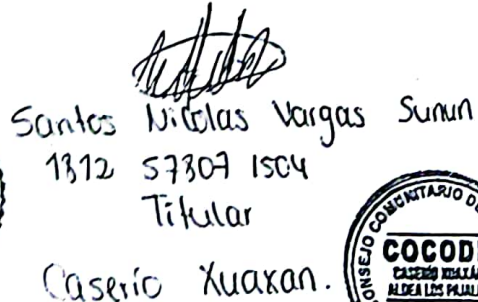 Santos Nicolas Vargas Sunun
1312 57307 1504
Titular
Caserio Xuaxan.
CONSEJO COMUNITARIO DE
COCODE
CASERIO
ALDEA LOS PAJALES